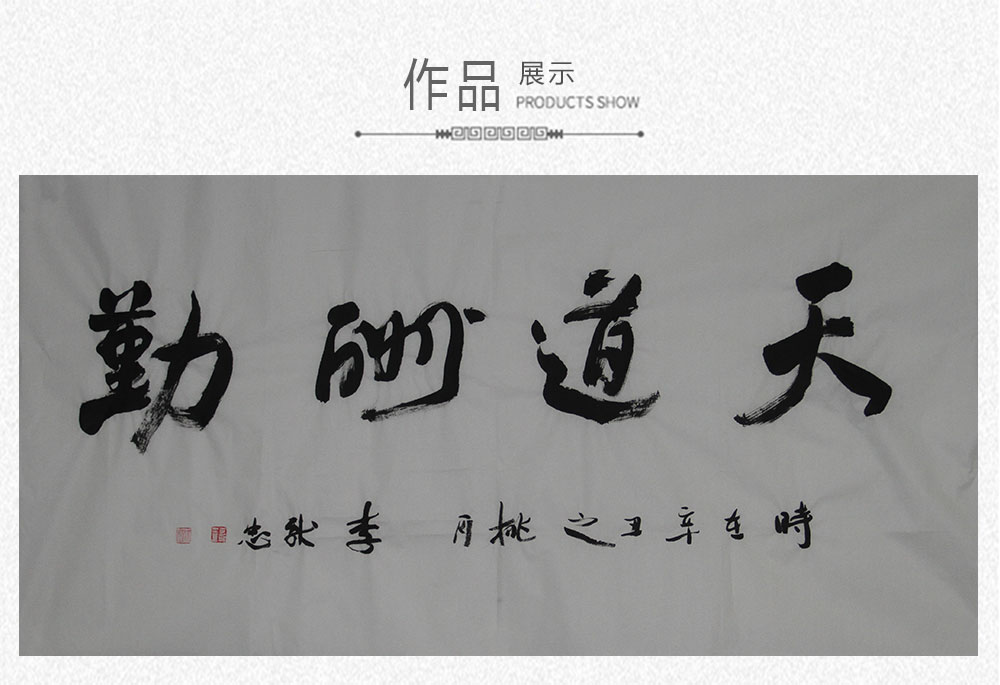 作品 展示
PRODUCTS SHOW
天道酬勤
時在辛丑之桃月 李张忠